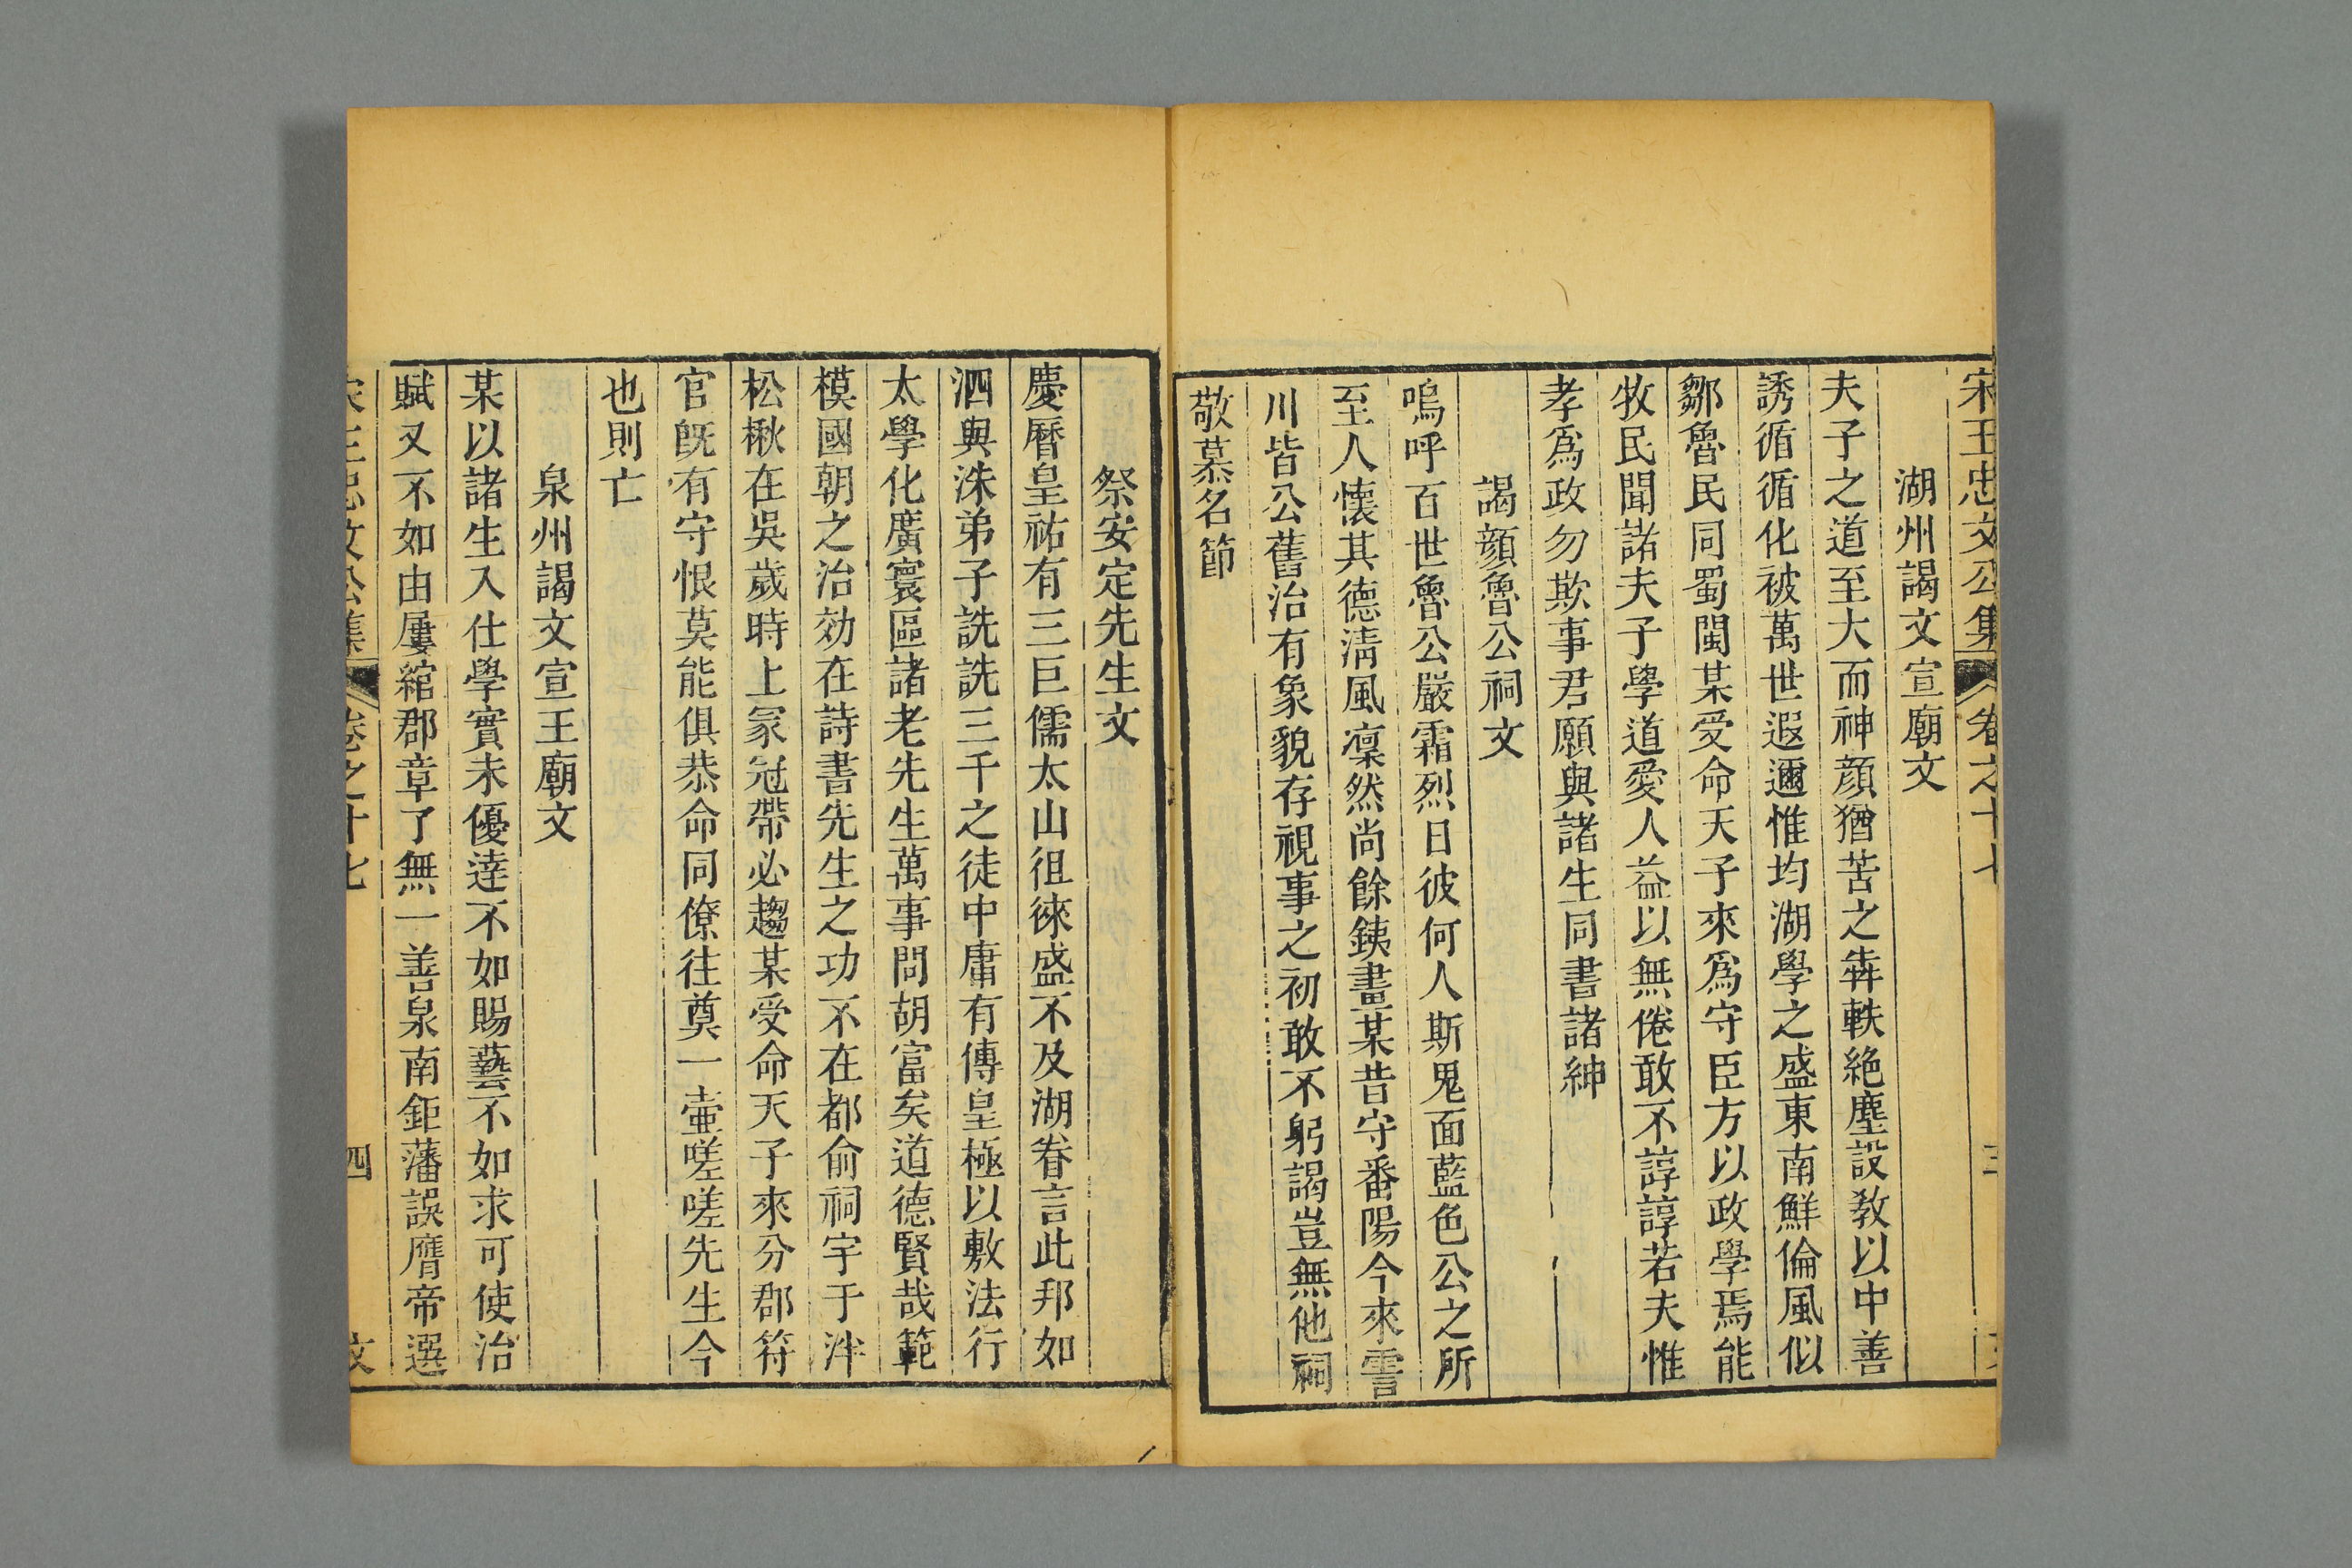 宋王忠文公集 卷之十七 三
湖州謁文宣廟文
夫子之道至大而神顔猶苦之犇軼絶塵設敎以中善
誘循循化被萬世遐邇惟均湖學之盛東南鮮倫風似
鄒魯民同蜀閩某受命天子來爲守臣方以政學焉能
牧民聞諸夫子學道愛人益以無倦敢不諄諄若夫惟
孝爲政勿欺事君願與諸生同書諸紳
謁顔魯公祠文
嗚呼百世魯公嚴霜烈日彼何人斯鬼面藍色公之所
至人懷其德淸風凜然尚餘銕畫某昔守番陽今來霅
川皆公舊治有象貌存視事之初敢不躬謁豈無他祠
敬慕名節
祭安定先生文
慶曆皇祐有三巨儒太山徂徠盛不及湖眷言此邦如
泗與洙弟子詵詵三千之徒中庸有傳皇極以敷法行
太學化廣寰區諸老先生萬事問胡富矣道德賢哉範
模國朝之治効在詩書先生之功不在都俞祠宇于泮
松楸在吳歲時上冢冠帶必趨某受命天子來分郡符
官旣有守恨莫能俱恭命同僚往奠一壷嗟嗟先生今
也則亡
泉州謁文宣王廟文
某以諸生入仕學實未優達不如賜藝不如求可使治
賦又不如由屢綰郡章了無一善泉南鉅藩誤膺帝選
宋王忠文公集 卷之十七 四 文